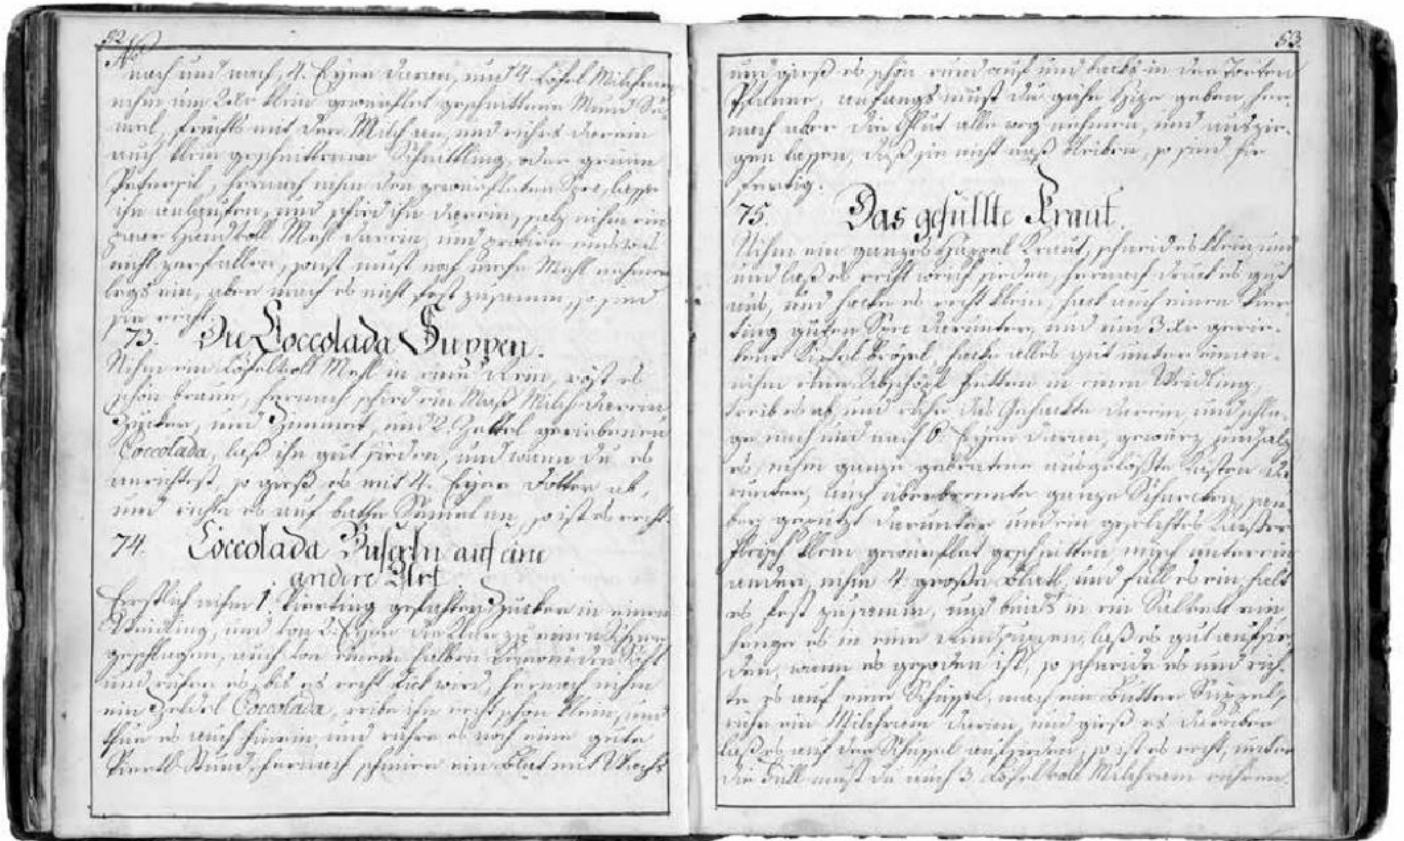 52
nach und nach, 4. Eyer daran, und 4 Löfel Milchram
nihm um 2 xr klein gewürflet geschnittene Mund Se-
mel, feichts mit der Milch an, und rührs darein
auch klein geschnittenen Schnittling, oder grünen
Petersil, hernach nihm den gewürfleten Spec, lasse
ihn anlaufen, und schüd ihn darein, salz nihm ein
paar Handvoll Mehl darein, und probiere eins obs
nicht zerfallen, sonst must noch mehr Mehl nehmen
legs ein, aber mach es nicht fest zusamm, so sind
sie recht.
73. Die Coccolada Suppen.
Nihm ein Löfelvoll Mehl in eine Rein, röst es
schön braun, hernach schüd ein Maß Milch darein
Zucker, und Zimmet, und 2. Zeltel geriebenen
Coccolada, laß ihn gut sieden, und wann du es
anrichtest, so gieß es mit 4. Eyer Dotter ab,
und richte es auf bathe Semel an, so ist es recht.
74. Coccolada Buserln auf eine
andere Art
Erstlich nihm 1. Vierting gefahten Zucker in einen
Weidling, und von 2. Eyer die Klar zu einen Schnee
geschlagen, auch von einem halben Lemoni den Saft
und rühre es, bis es recht dick wird, hernach nihm
ein Zeldel Coccolada, reibe ihn recht schön klein, und
thue es auch hinein und rühre es noch eine gute
Viertl Stund, hernach schmire ein Blat mit Wachs
53
und gieß es schön rund auf und backs in der Torten
Pfanne, anfangs must du gähe Hize geben, her-
nach aber die Glut alle weg nehmen, und auszie-
gen lassen, daß sie nicht naß bleiben, so sind sie
fertig.
75. Das gefüllte Kraut
Nihm ein ganzes Happel Kraut, schneid es klein und
und laß es recht weich sieden, hernach druck es gut
aus, und hacke es recht klein, hack auch einen Vier-
ting guten Spec darunter, und um 3 xr gerie-
bene Kipfel Brösel, hacke alles gut unter einan-
nihm einen Abschöpf Fetten in einen Weidling,
treib es ab, und rühr das Gehackte darein, und schla-
ge nach und nach 6 Eyer daran, gewürz und salz
es, nihm ganze gebratene ausgelößte Kästen da-
runter, auch überbrennte ganze Schnecken, sau-
ber gepuzt darunter und ein geselchtes
fleisch klein gewürflet geschnitten misch unterein
ander, nihm 4 große Blatl, und füll es ein halt
es fest zusamm, und binds in ein Salvett ein
henge es in eine Rindsuppen, laß es gut aufsie-
den, wann es gesoden ist, so schneide es und rich-
te es auf eine Schüssel, mach ein Butter Süppel,
rühr ein Milchram daran, und gieß es darüber
laß es auf der Schüssel aufsieden, so ist es recht, unter
die Füll must du auch 3. Löfelvoll Milchram rühren.